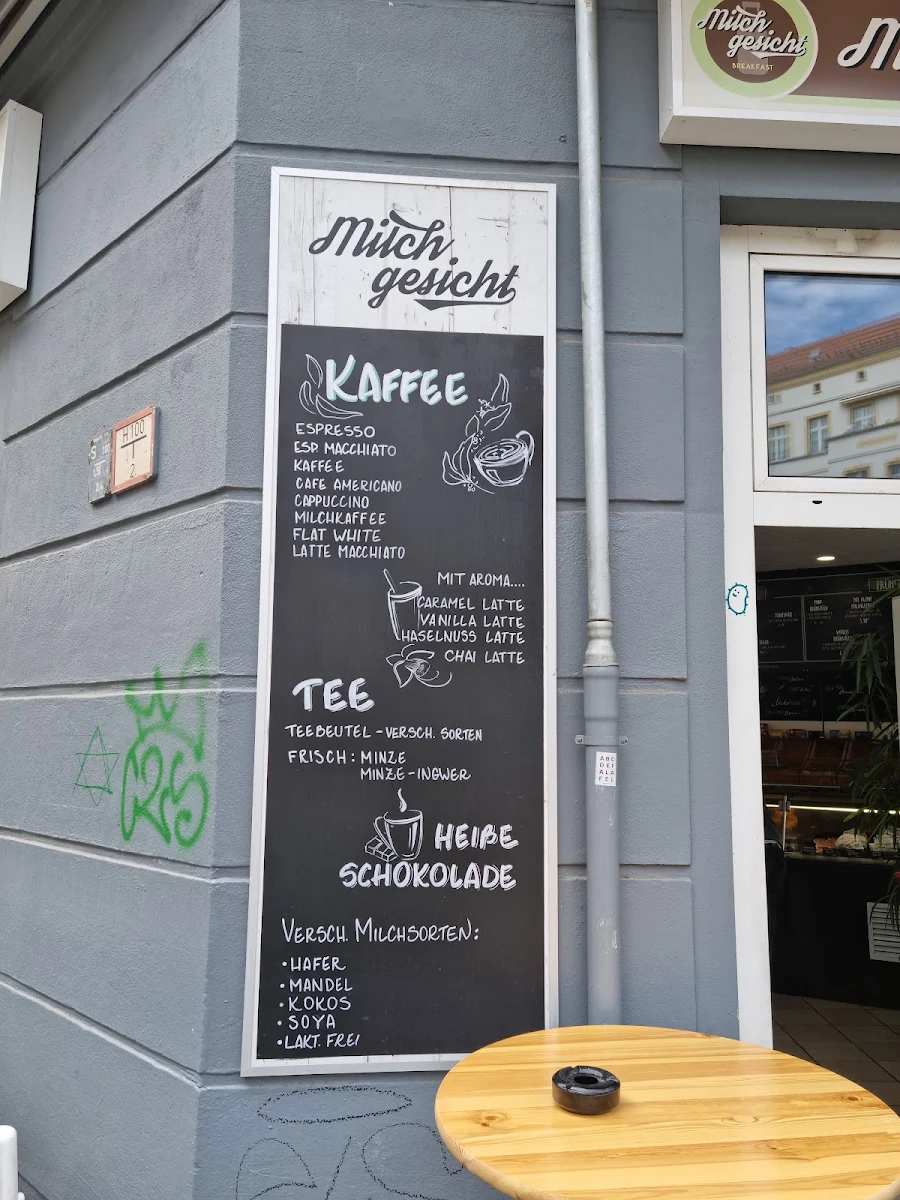 Milch
gesicht
BREAKFAST
Milch
gesicht
KAFFEE
ESPRESSO
ESP. MACCHIATO
KAFFEE
CAFE AMERICANO
CAPPUCCINO
MILCHKAFFEE
FLAT WHITE
LATTE MACCHIATO
MIT AROMA....
CARAMEL LATTE
VANILLA LATTE
HASELNUSS LATTE
CHAI LATTE
TEE
TEEBEUTEL - VERSCH. SORTEN
FRISCH: MINZE
MINZE-INGWER
HEIßE
SCHOKOLADE
VERSCH. MILCHSORTEN:
• HAFER
• MANDEL
• KOKOS
• SOYA
• LAKT. FREI
H 100
2